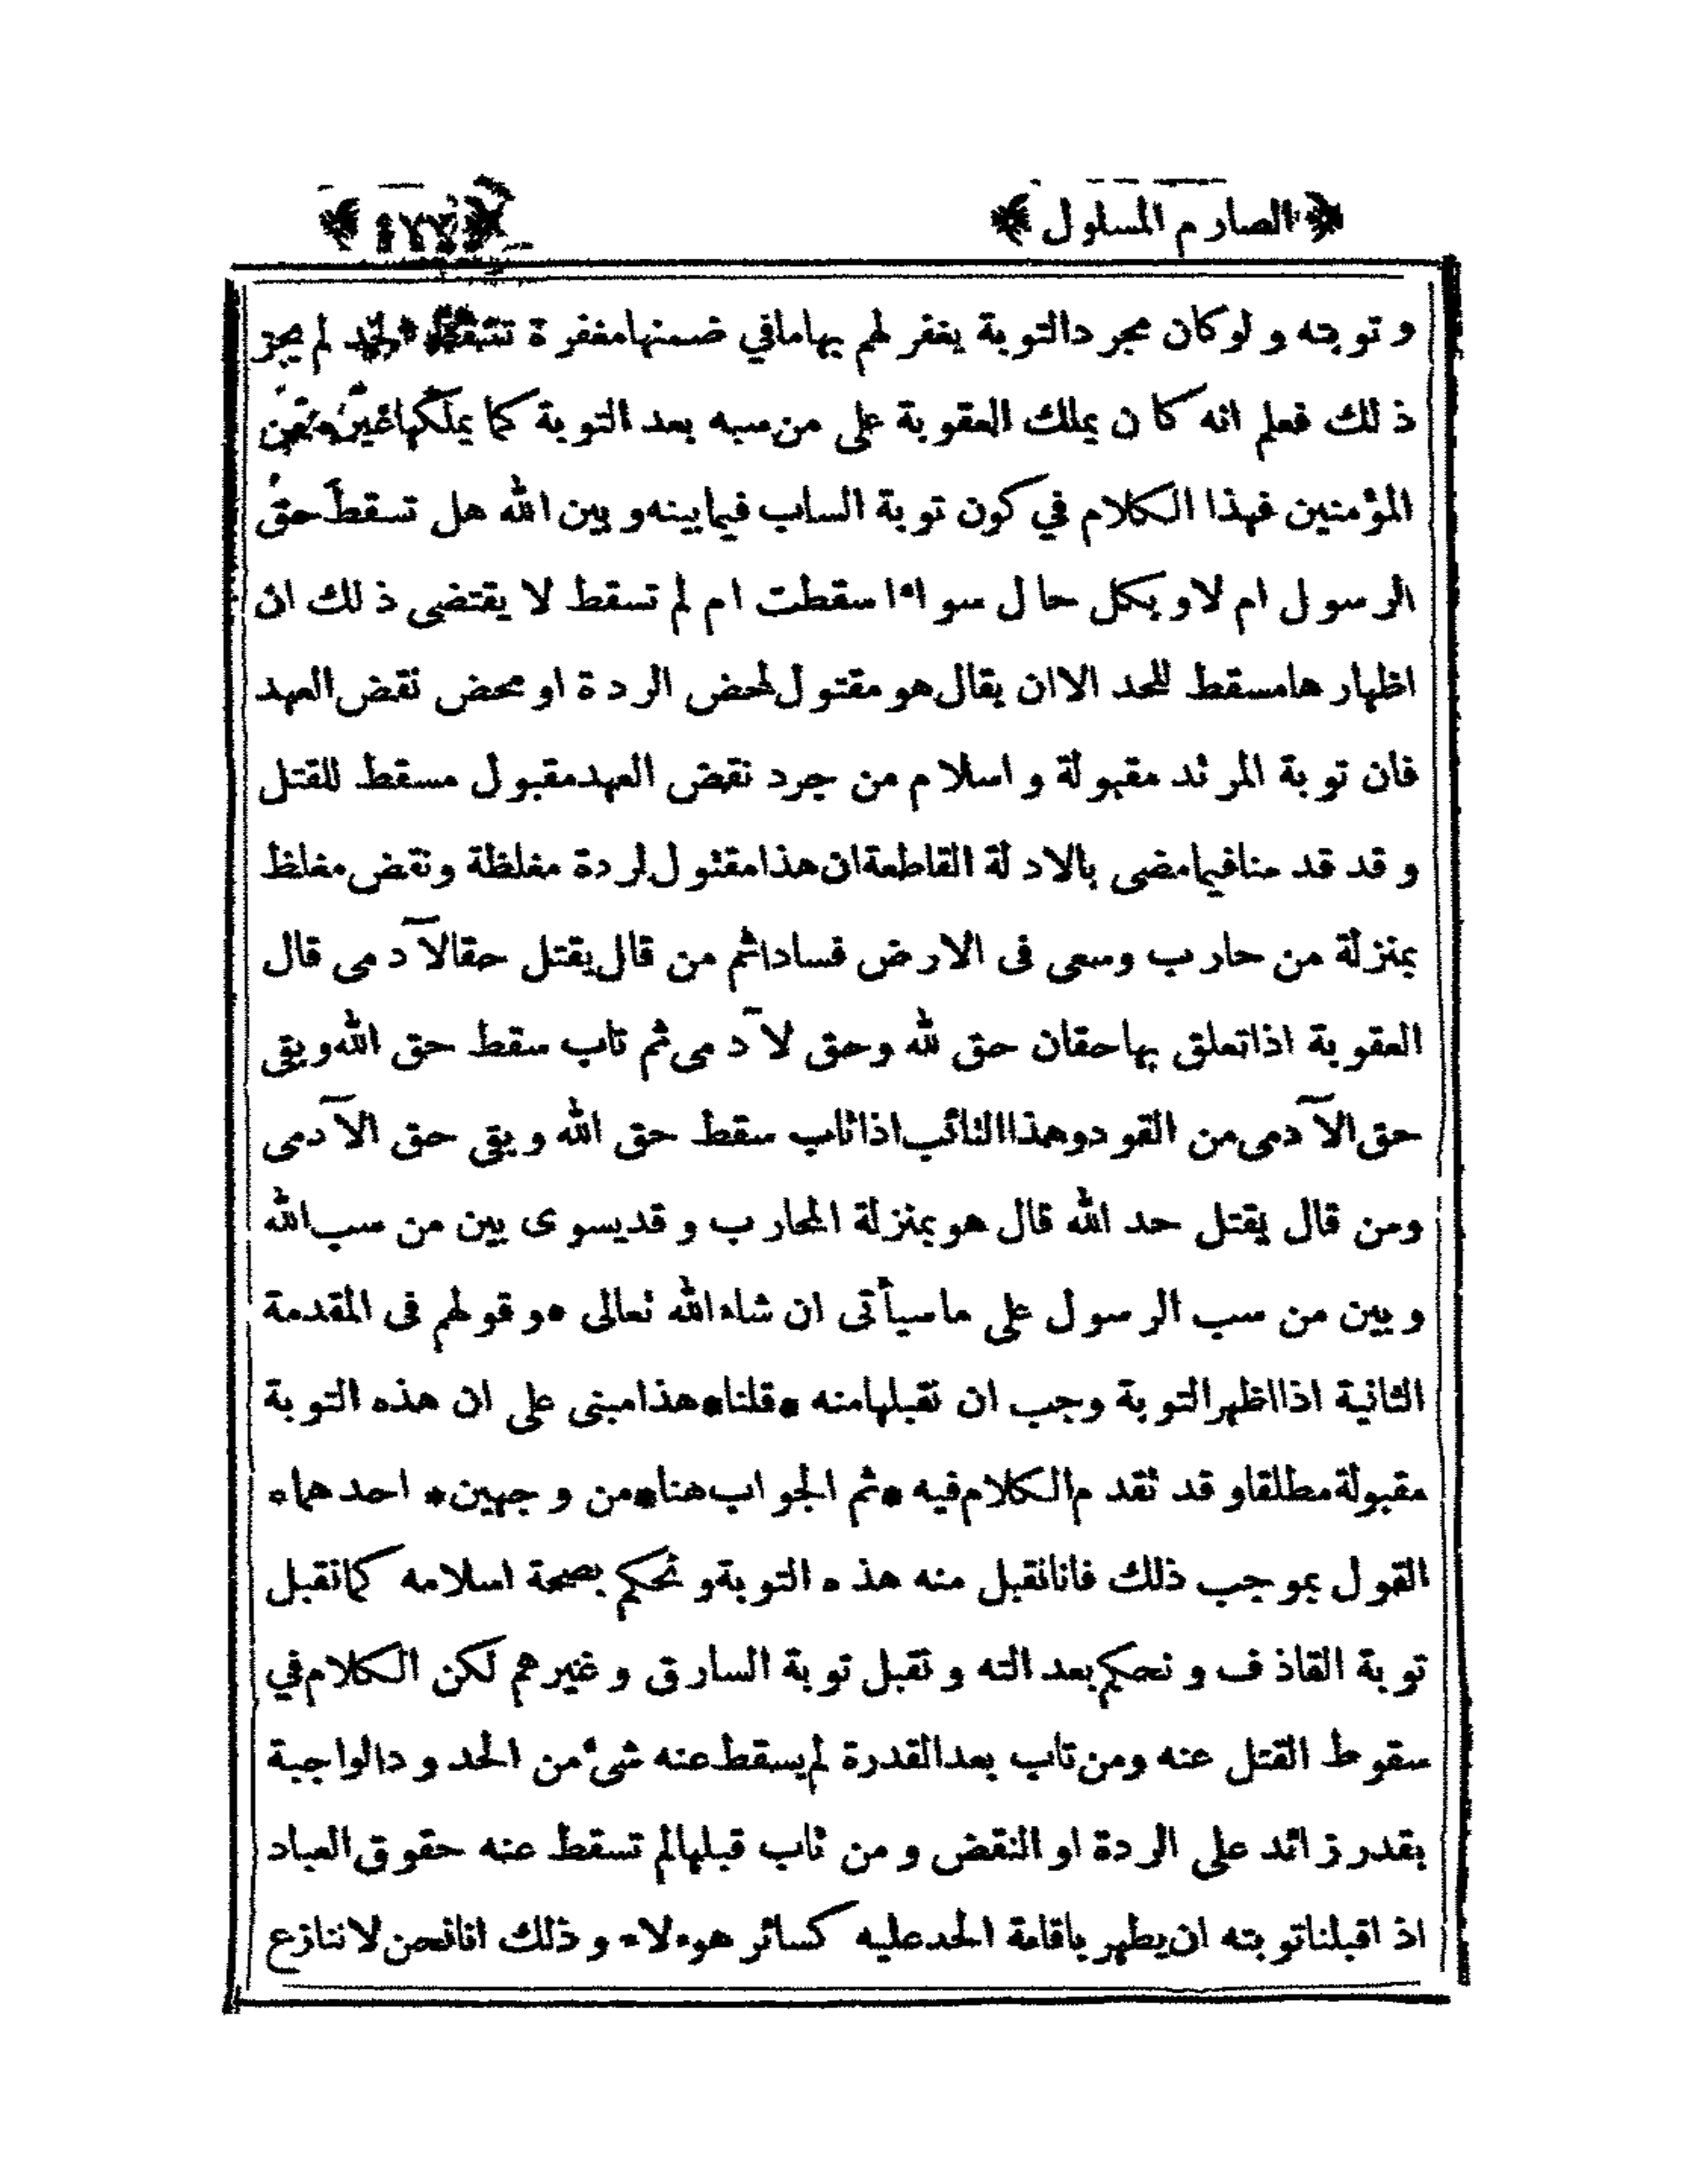 ﴿الصارم المسلول﴾
وتوبته ولو كان مجرد التوبة يغفر لهم بها ما في ضمنها مغفرة تسقط الحد لم يجز
ذلك فعلم انه كان يملك العقوبة على من سبه بعد التوبة كما يملكها غيره من
المؤمنين فهذا الكلام في كون توبة الساب فيما بينه وبين الله هل تسقط حق
الرسول ام لا وبكل حال سواء اسقطت ام لم تسقط لا يقتضى ذلك ان
اظهارها مسقط للحد الا ان يقال هو مقتول لمحض الردة او محض نقض العهد
فان توبة المرتد مقبولة واسلام من جرد نقض العهد مقبول مسقط للقتل
وقد قدمنا فيما مضى بالادلة القاطعة ان هذا مقتول لردة مغلظة ونقض مغلظ
بمنزلة من حارب وسعى فى الارض فسادا ثم من قال يقتل حقا لآدمى قال
العقوبة اذا تعلق بها حقان حق لله وحق لآدمى ثم تاب سقط حق الله وبقى
حق الآدمى من القود وهذا التائب اذا تاب سقط حق الله وبقى حق الآدمى
ومن قال يقتل حد الله قال هو بمنزلة المحارب وقد يسوى بين من سب الله
وبين من سب الرسول على ما سيأتى ان شاء الله تعالى * وقولهم فى المقدمة
الثانية اذا اظهر التوبة وجب ان نقبلها منه * قلنا * هذا مبنى على ان هذه التوبة
مقبولة مطلقا وقد تقدم الكلام فيه * ثم الجواب هنا * من وجهين * احدهما *
القول بموجب ذلك فانا نقبل منه هذه التوبة ونحكم بصحة اسلامه كما نقبل
توبة القاذف ونحكم بعدالته ونقبل توبة السارق وغيرهم لكن الكلام في
سقوط القتل عنه ومن تاب بعد القدرة لم يسقط عنه شئ من الحدود الواجبة
بقدر زائد على الردة او النقض ومن تاب قبلها لم تسقط عنه حقوق العباد
اذا قبلنا توبته ان يطهر باقامة الحد عليه كسائر هؤلاء وذلك انا نحن لا ننازع